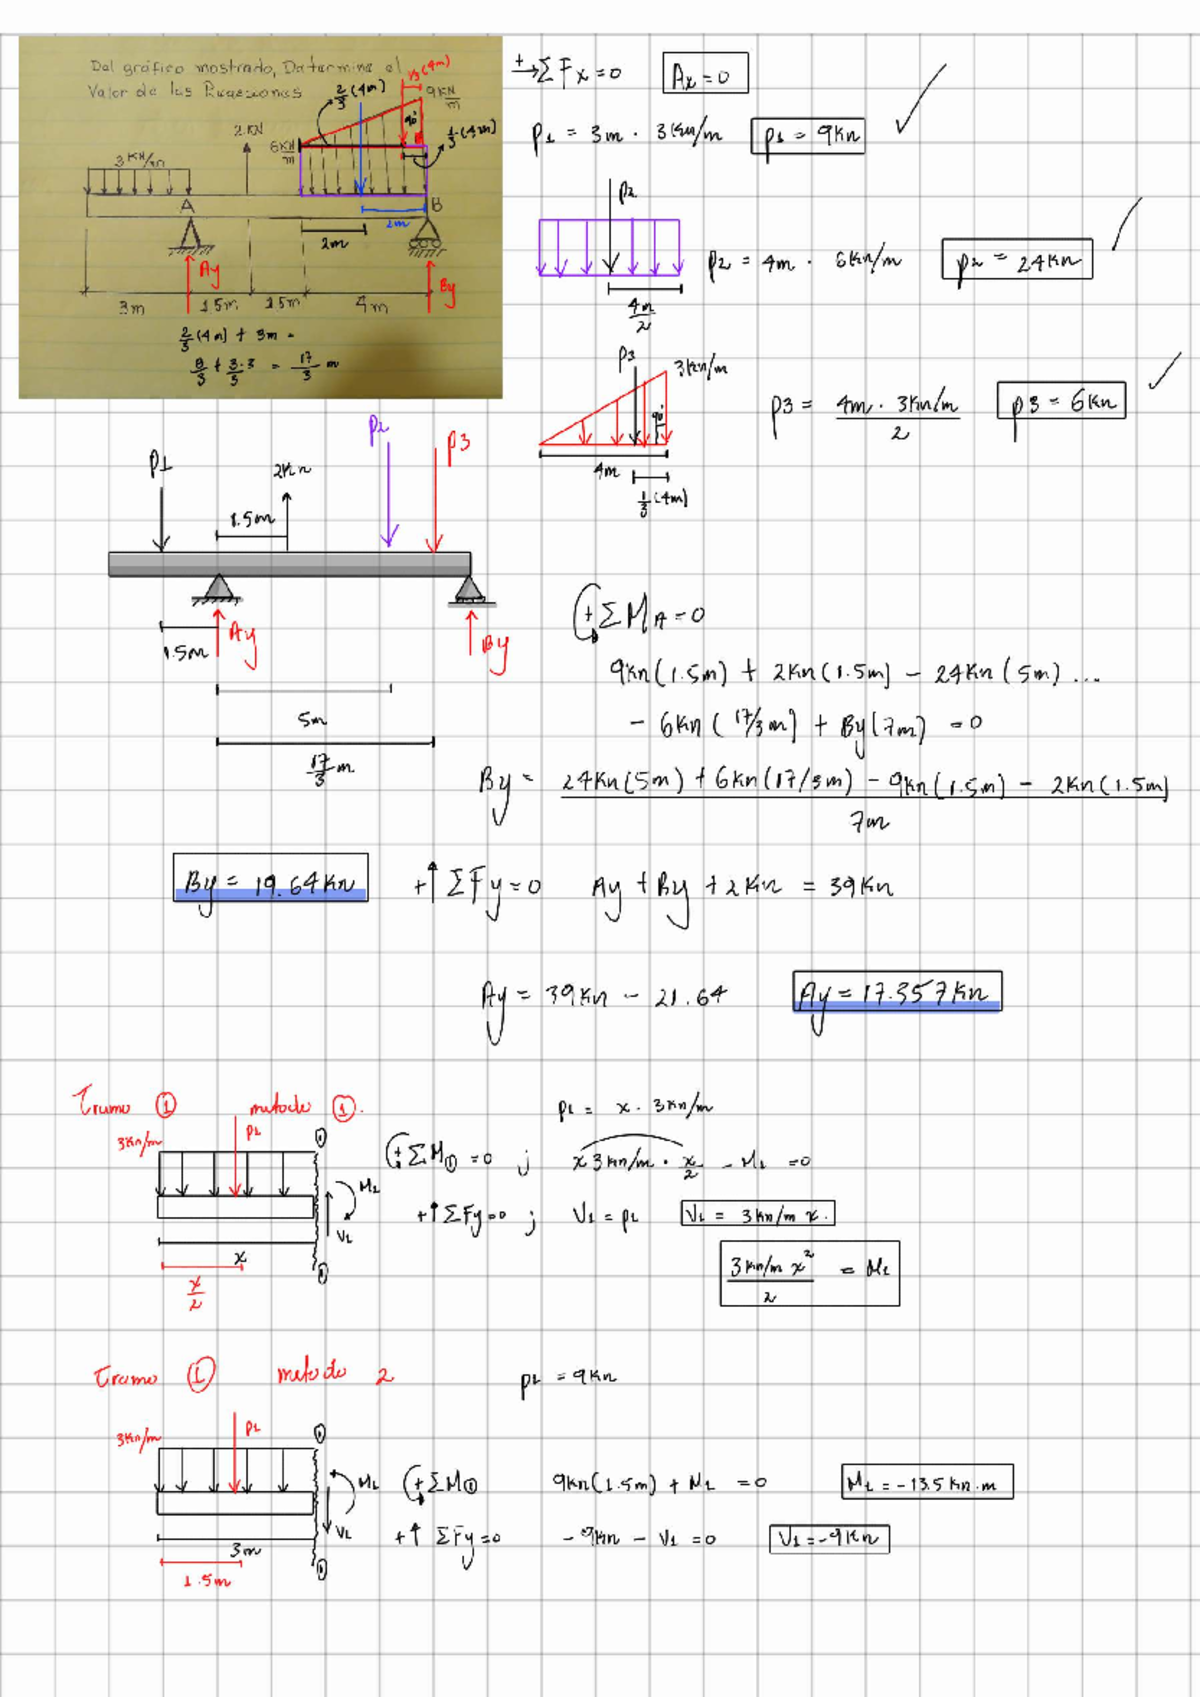 Del gráfico mostrado, Determine el
Valor de las Reacciones
1/3(4m)
2/3(4m)
9 KN/m
2KN
6KN/m
90°
1/3(4m)
3 KN/m
A
B
2m
2m
Ay
By
3m
1.5m
1.5m
4m
2/3(4m) + 3m =
8/3 + 3·3/3 = 17/3 m
+→ ΣFx=0
Ax=0
P1 = 3m · 3Kn/m
P1 = 9Kn
P2
P2 = 4m · 6Kn/m
P2 = 24Kn
4m/2
P3
3Kn/m
90°
4m
1/3(4m)
P3 = 4m · 3Kn/m / 2
P3 = 6Kn
P1
2Kn
P2
P3
1.5m
Ay
By
1.5m
5m
17/3 m
+ΣMA=0
9Kn(1.5m) + 2Kn(1.5m) - 24Kn(5m) ...
- 6Kn(17/3m) + By(7m) =0
By = 24Kn(5m) + 6Kn(17/3m) - 9Kn(1.5m) - 2Kn(1.5m) / 7m
By = 19.64Kn
+↑ ΣFy=0
Ay + By + 2Kn = 39Kn
Ay = 39Kn - 21.64
Ay = 17.357Kn
Tramo ① metodo ①.
P1 = x · 3Kn/m
3Kn/m
P1
①
M1
V1
x
x/2
①
+ΣM①=0 ; x3Kn/m · x/2 - M1 =0
+↑ΣFy=0 ; V1 = P1
V1 = 3Kn/m x.
3Kn/m x² / 2 = M1
Tramo ① metodo 2
P1 = 9Kn
3Kn/m
P1
①
M1
V1
3m
1.5m
①
+ΣM①
9Kn(1.5m) + M1 =0
M1 = -13.5 Kn.m
+↑ ΣFy=0
-9Kn - V1 =0
V1=-9Kn